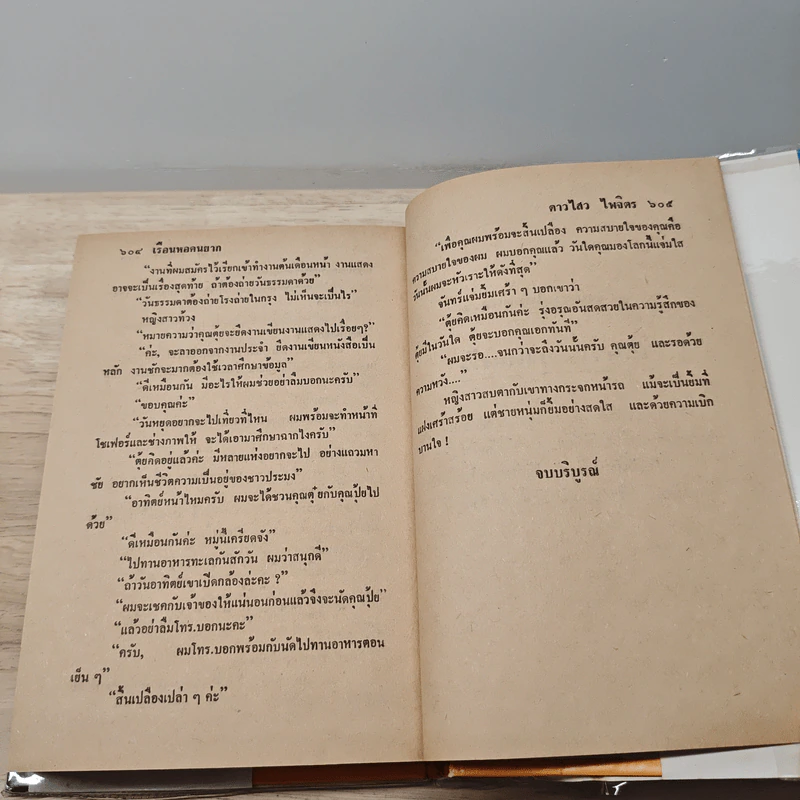 ๖๐๔ เรือนหอคนยาก
“งานที่ผมสมัครไว้เรียกเข้าทำงานต้นเดือนหน้า งานแสดง
อาจจะเป็นเรื่องสุดท้าย ถ้าต้องถ่ายวันธรรมดาด้วย”
“วันธรรมดาต้องถ่ายโรงถ่ายในกรุง ไม่เห็นจะเป็นไร”
หญิงสาวท้วง
“หมายความว่าคุณตุ้ยจะยึดงานเขียนงานแสดงไปเรื่อยๆ?”
“ค่ะ, จะลาออกจากงานประจำ ยึดงานเขียนหนังสือเป็น
หลัก งานชักจะมากต้องใช้เวลาศึกษาข้อมูล”
“ดีเหมือนกัน มีอะไรให้ผมช่วยอย่าลืมบอกนะครับ”
“ขอบคุณค่ะ”
“วันหยุดอยากจะไปเที่ยวที่ไหน ผมพร้อมจะทำหน้าที่
โชเฟอร์และช่างภาพให้ จะได้เอามาศึกษาฉากไงครับ”
“ตุ้ยคิดอยู่แล้วค่ะ มีหลายแห่งอยากจะไป อย่างแถวมหา
ชัย อยากเห็นชีวิตความเป็นอยู่ของชาวประมง”
“อาทิตย์หน้าไหมครับ ผมจะได้ชวนคุณตุ๋ยกับคุณปุ้ยไป
ด้วย”
“ดีเหมือนกันค่ะ หมู่นี้เครียดจัง”
“ไปทานอาหารทะเลกันสักวัน ผมว่าสนุกดี”
“ถ้าวันอาทิตย์เขาเปิดกล้องล่ะคะ ?”
“ผมจะเชคกับเจ้าของให้แน่นอนก่อนแล้วจึงจะนัดคุณปุ้ย”
“แล้วอย่าลืมโทร.บอกนะคะ”
“ครับ, ผมโทร.บอกพร้อมกับนัดไปทานอาหารตอน
เย็น ๆ”
“สิ้นเปลืองเปล่า ๆ ค่ะ”
ดาวไสว ไพจิตร ๖๐๕
“เพื่อคุณผมพร้อมจะสิ้นเปลือง ความสบายใจของคุณคือ
ความสบายใจของผม ผมบอกคุณแล้ว วันใดคุณมองโลกนี้แจ่มใส
วันนั้นผมจะหัวเราะให้ดังที่สุด”
จันทร์แจ่มยิ้มเศร้า ๆ บอกเขาว่า
“ตุ้ยคิดเหมือนกันค่ะ รุ่งอรุณอันสดสวยในความรู้สึกของ
ตุ้ยมีในวันใด ตุ้ยจะบอกคุณเอกทันที”
“ผมจะรอ....จนกว่าจะถึงวันนั้นครับ คุณตุ้ย และรอด้วย
ความหวัง....”
หญิงสาวสบตากับเขาทางกระจกหน้ารถ แม้จะเป็นยิ้มที่
แฝงเศร้าสร้อย แต่ชายหนุ่มก็ยิ้มอย่างสดใส และด้วยความเบิก
บานใจ !
จบบริบูรณ์